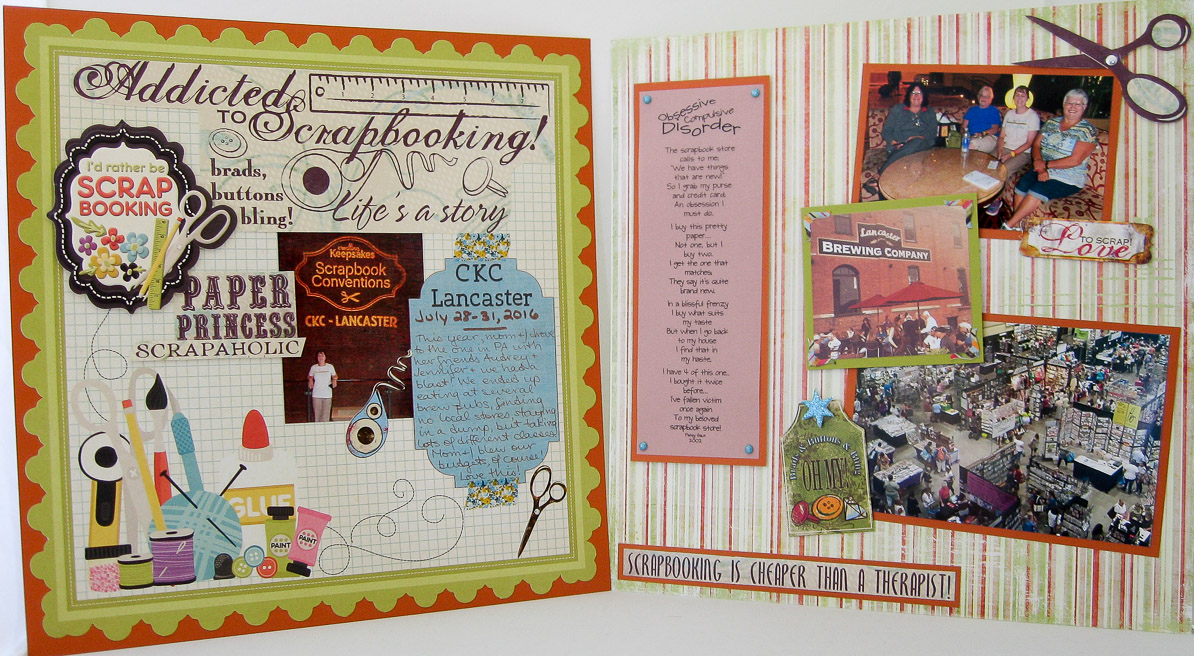 Addicted
TO
Scrapbooking!
brads,
buttons
bling!
Life's a story
I'd rather be
SCRAP
BOOKING
PAPER
PRINCESS
SCRAPAHOLIC
Keepsakes
Scrapbook
Conventions
CKC - LANCASTER
CKC
Lancaster
July 28-31, 2016
This year, mom + I drove
to the one in PA with
her friends Audrey +
Jennifer + we had a
blast! We ended up
eating at several
brew pubs, finding
no local stores, staying
in a dump, but taking
lots of different classes.
Mom + I blew our
budgets, of course!
Love this!
GLUE
PAINT
PAINT
Obsessive
Compulsive
Disorder
The scrapbook store
calls to me,
"We have things
that are new!"
So I grab my purse
and credit card.
An obsession I
must do.
I buy this pretty
paper...
Not one, but I
buy two.
I get the one that
matches.
They say it's quite
brand new.
In a blissful frenzy
I buy what suits
my taste
But when I go back
to my house
I find that in
my haste,
I have 4 of this one.
I bought it twice
before...
I've fallen victim
once again
To my beloved
scrapbook store!
2002
Lancaster
BREWING COMPANY
TO SCRAP!
Love
Brads & Buttons & Bling
OH MY!
SCRAPBOOKING IS CHEAPER THAN A THERAPIST!